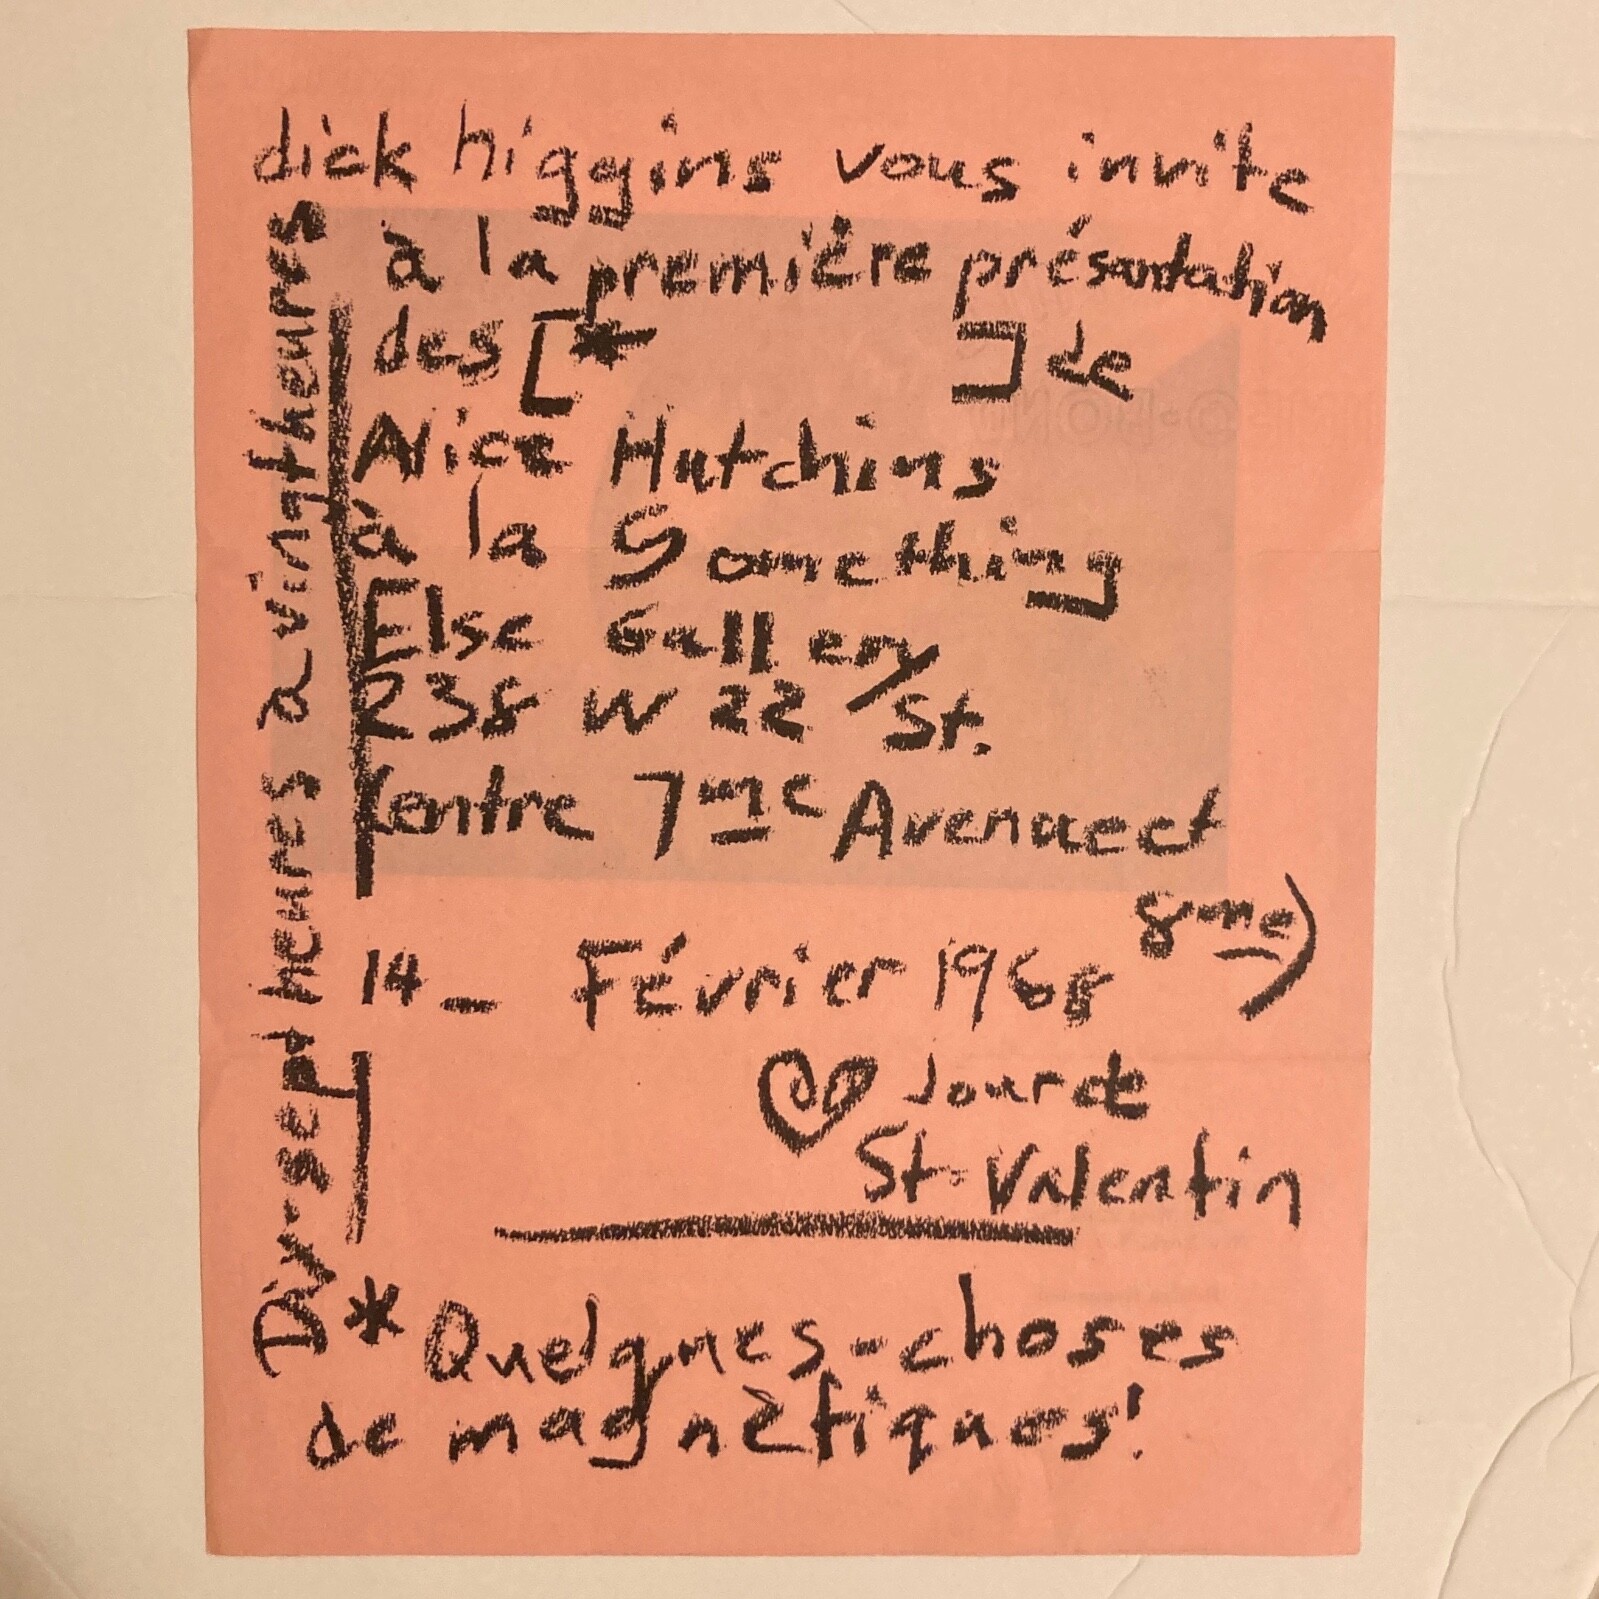 dick higgins vous invite
à la première présentation
des [* ] de
Alice Hutchins
à la Something
Else Gallery
238 W 22 St.
(entre 7me Avenue et
8me)
14 – Février 1968
Jour de
St. Valentin
* Quelques-choses
de magnètiques!
Dix-sept heures a vingt heures